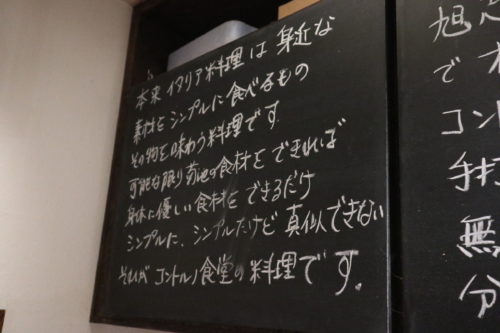 本来イタリア料理は身近な
素材をシンプルに食べるもの
その物を味わう料理です。
可能な限り菊池の食材をできれば
身体に優しい食材をできるだけ
シンプルに、シンプルだけど真似できない
それがコントルノ食堂の料理です。
旭
で
コント
手打
無
分